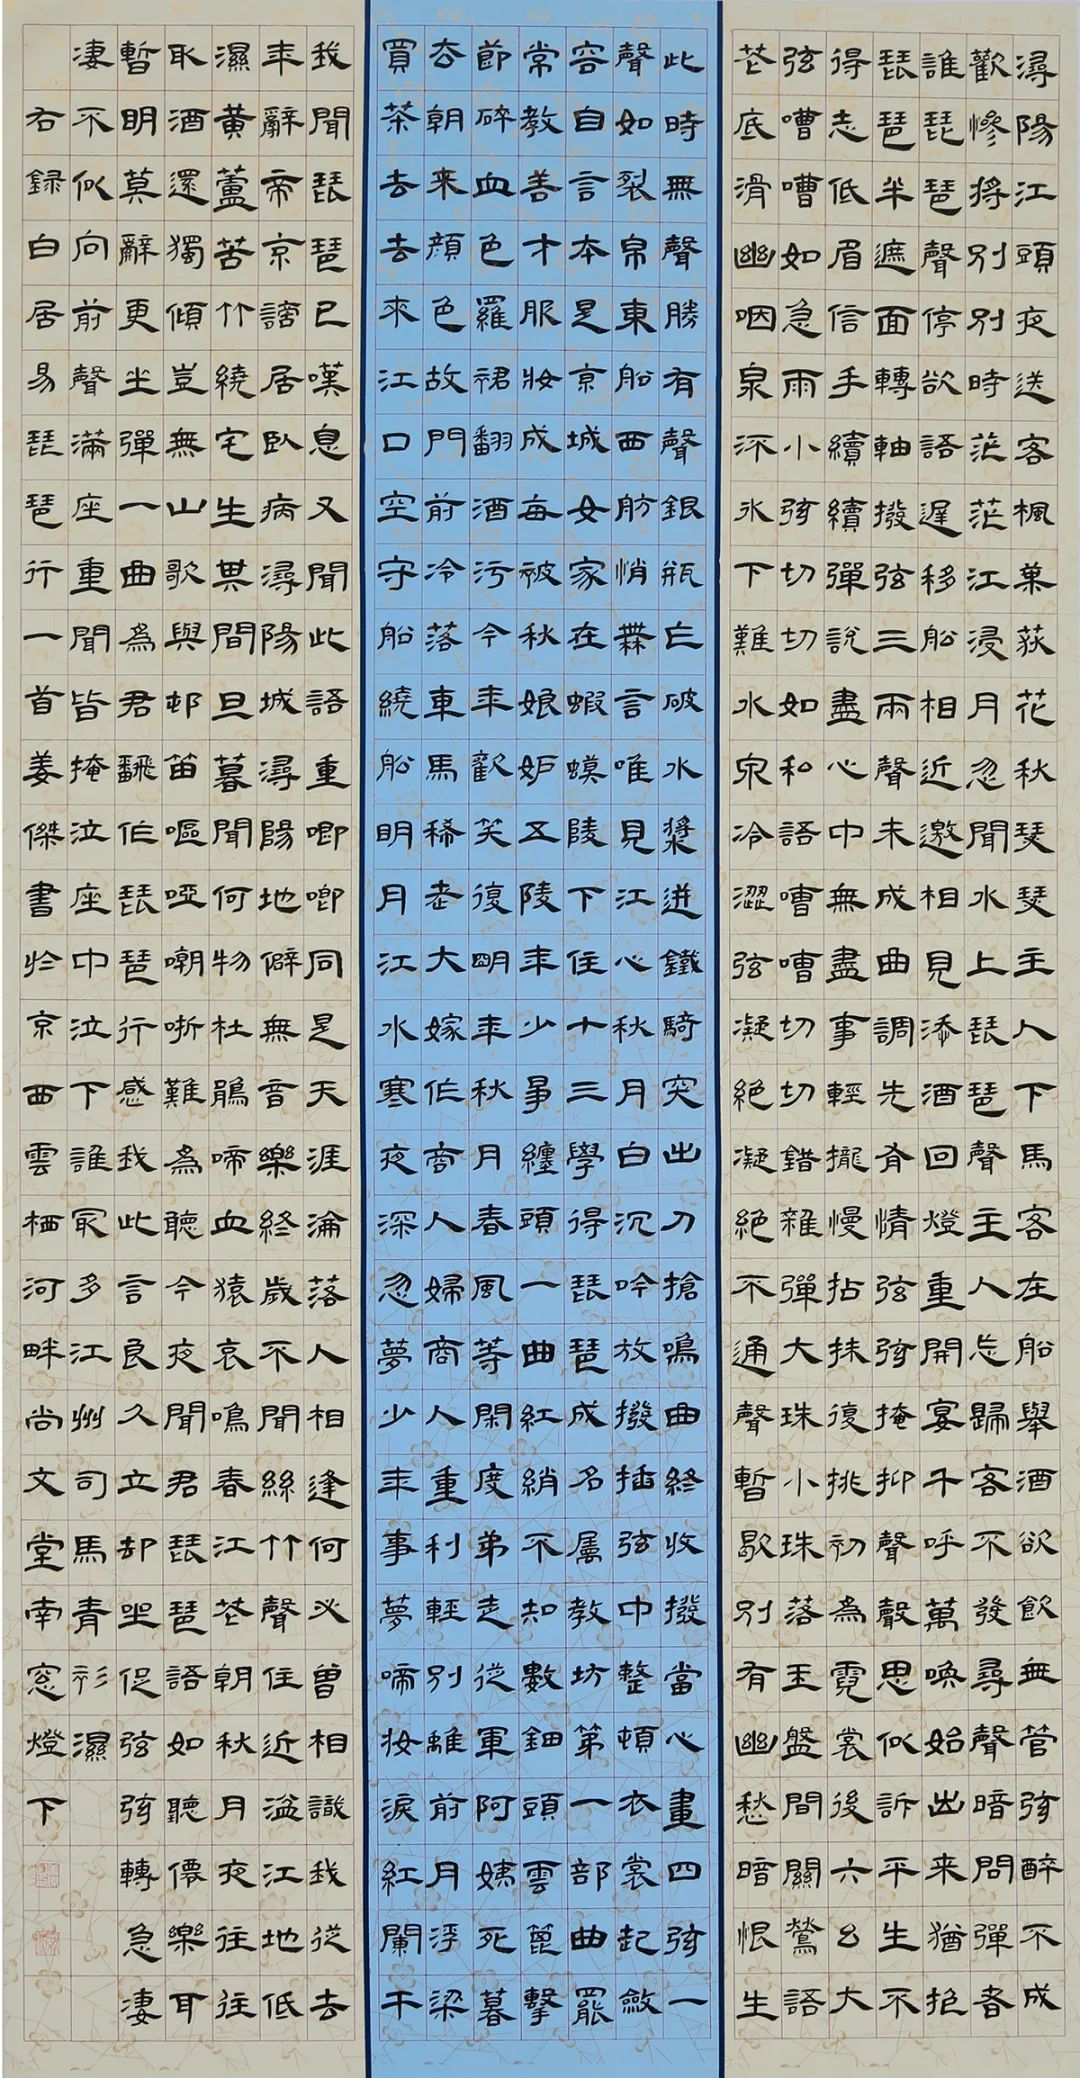 潯陽江頭夜送客楓葉荻花秋瑟瑟主人下馬客在船舉酒欲飲無管弦醉不成
歡慘將別別時茫茫江浸月忽聞水上琵琶聲主人忘歸客不發尋聲暗問彈者
誰琵琶聲停欲語遲移船相近邀相見添酒回燈重開宴千呼萬喚始出来猶抱
琵琶半遮面轉軸撥弦三兩聲未成曲調先有情弦弦掩抑聲聲思似訴平生不
得志低眉信手續續彈說盡心中無盡事輕攏慢拈抹復挑初為霓裳後六幺大
弦嘈嘈如急雨小弦切切如私語嘈嘈切切錯雜彈大珠小珠落玉盤間關鶯語
花底滑幽咽泉流氷下難水泉冷澀弦凝絕凝絕不通聲暫歇別有幽愁暗恨生
此時無聲勝有聲銀瓶乍破水漿迸鐵騎突出刀搶鳴曲終收撥當心畫四弦一
聲如裂帛東船西舫悄無言唯見江心秋月白沉吟放撥插弦中整頓衣裳起斂
容自言本是京城女家在蝦蟆陵下住十三學得琵琶成名屬教坊第一部曲罷
常教善才服妝成每被秋娘妒五陵年少爭纏頭一曲紅綃不知數鈿頭雲篦擊
節碎血色羅裙翻酒污今年歡笑復明年秋月春風等閑度弟走從軍阿姨死暮
去朝来顏色故門前冷落車馬稀老大嫁作商人婦商人重利輕別離前月浮梁
買茶去去來江口空守船繞船明月江水寒夜深忽夢少年事夢啼妝淚紅闌干
我聞琵琶已嘆息又聞此語重唧唧同是天涯淪落人相逢何必曾相識我從去
年辭帝京謫居臥病潯陽城潯陽地僻無音樂終歲不聞絲竹聲住近湓江地低
濕黃蘆苦竹繞宅生其間旦暮聞何物杜鵑啼血猿哀鳴春江花朝秋月夜往往
取酒還獨傾豈無山歌與邨笛嘔啞嘲哳難為聽今夜聞君琵琶語如聽僊樂耳
暫明莫辭更坐彈一曲為君飜作琵琶行感我此言良久立却坐促弦弦轉急凄
凄不似向前聲滿座重聞皆掩泣座中泣下誰冣多江州司馬青衫濕
右録白居易琵琶行一首姜傑書於京西雲栖河畔尚文堂南窓燈下